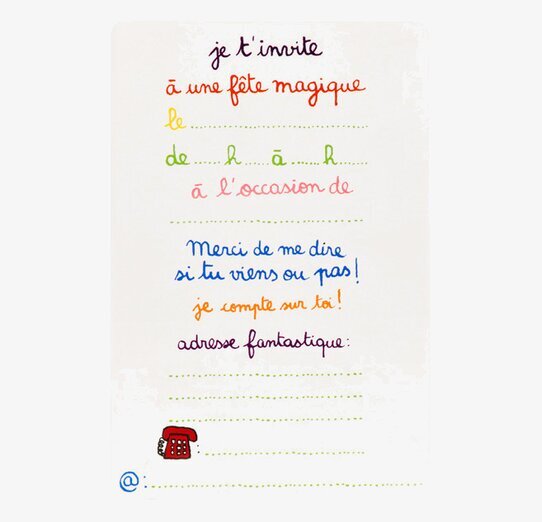 je t'invite
à une fête magique
le ..............................
de ...... h ...... à ...... h ......
à l'occasion de
..............................
Merci de me dire
si tu viens ou pas !
je compte sur toi !
adresse fantastique :
..............................
..............................
..............................
: ..............................
@ : ..............................